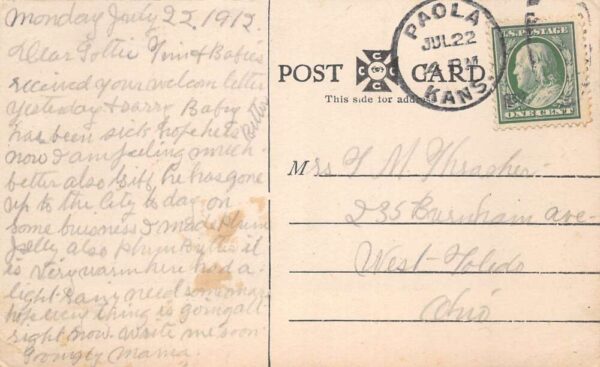 Monday July 22, 1912.
Dear Lottie & Babies
received your welcom letter
Yesterday & sorry Baby
has been sick hope he is
Better
now I am feeling much
better also he has gone
up to the City to day on
some business I made Plum
Jelly also Plum Butter it
is very warm here had a
light Rain need some more
hope every thing is going all
right now. Write me soon
Mama.
POST CARD
CCCC
This side for address
PAOLA
JUL 22
KANS.
U.S. POSTAGE
ONE CENT
Mrs T M Thrasher
235 Burnham ave-
West-Toledo
Ohio